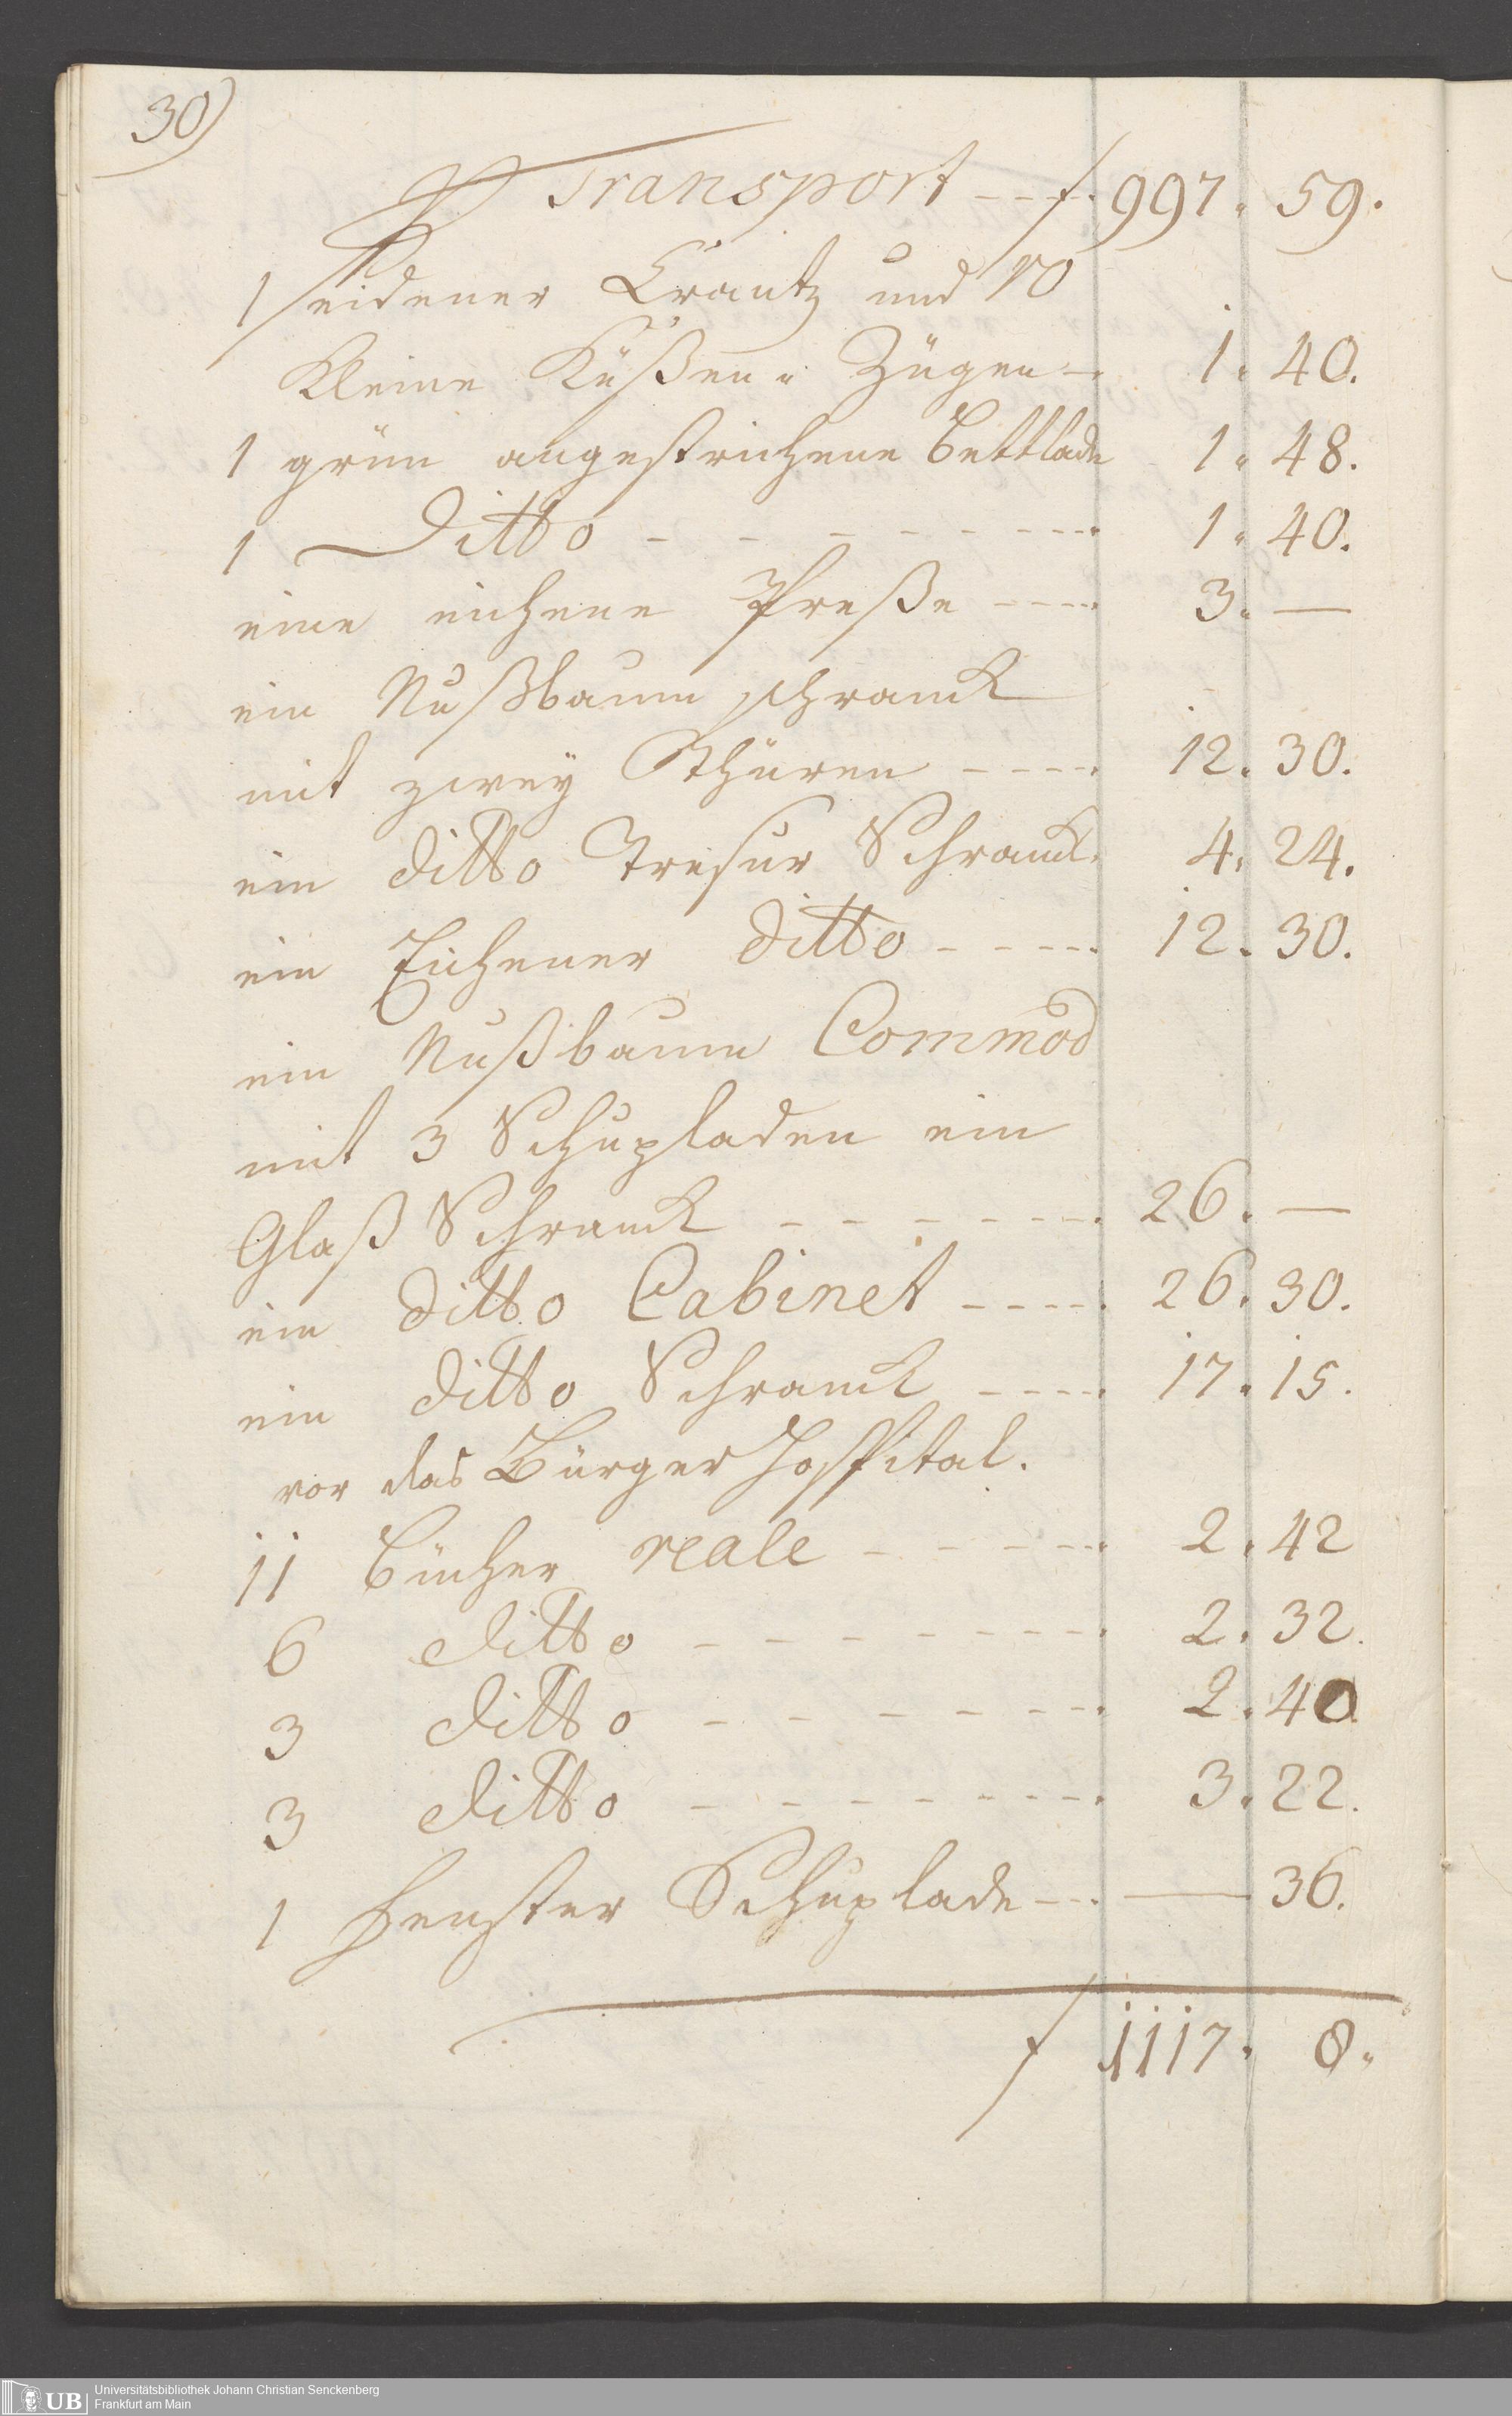 30)
Transport --- f. 997. 59.
1 seidener Crantz und 10
kleine Küßen Zügen -. 1. 40.
1 grün angestrichene Bettlade 1. 48.
1 Ditto - - - - - - - 1. 40.
eine eichene Preße ---- 3. —
ein Nußbaum schranck
mit zwey Thüren ---- 12. 30.
ein ditto Tresur Schranck. 4. 24.
ein Eichener ditto ----- 12. 30.
ein Nußbaum Commod
mit 3 Schupladen ein
Glaß Schranck - - - - - - 26. —
ein ditto Cabinet ---- 26. 30.
ein ditto Schranck ---- 17. 15.
vor das Bürger Hospital.
11 bücher reale - - - - - 2. 42
6 ditto - - - - - - - 2. 32.
3 ditto - - - - - - - 2. 40
3 ditto - - - - - - - 3. 22.
1 fenster Schuplade --- — 36.
f 1117. 8.
UB Universitätsbibliothek Johann Christian Senckenberg
Frankfurt am Main